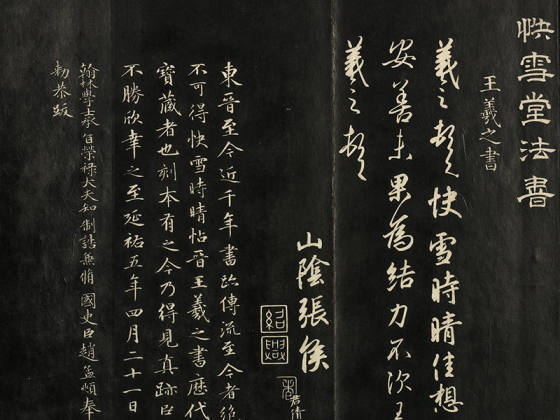 快雪堂法書
王羲之書
羲之頓首快雪時晴佳想
安善未果為結力不次王
羲之頓首
山陰張侯
紹興
君倩
東晉至今近千年書跡傳流至今者絕
不可得快雪時晴帖晉王羲之書歷代
寶藏者也刻本有之今乃得見真跡臣
不勝欣幸之至延祐五年四月二十一日
翰林學士承旨榮祿大夫知制誥兼脩國史臣趙孟頫奉
勅恭跋